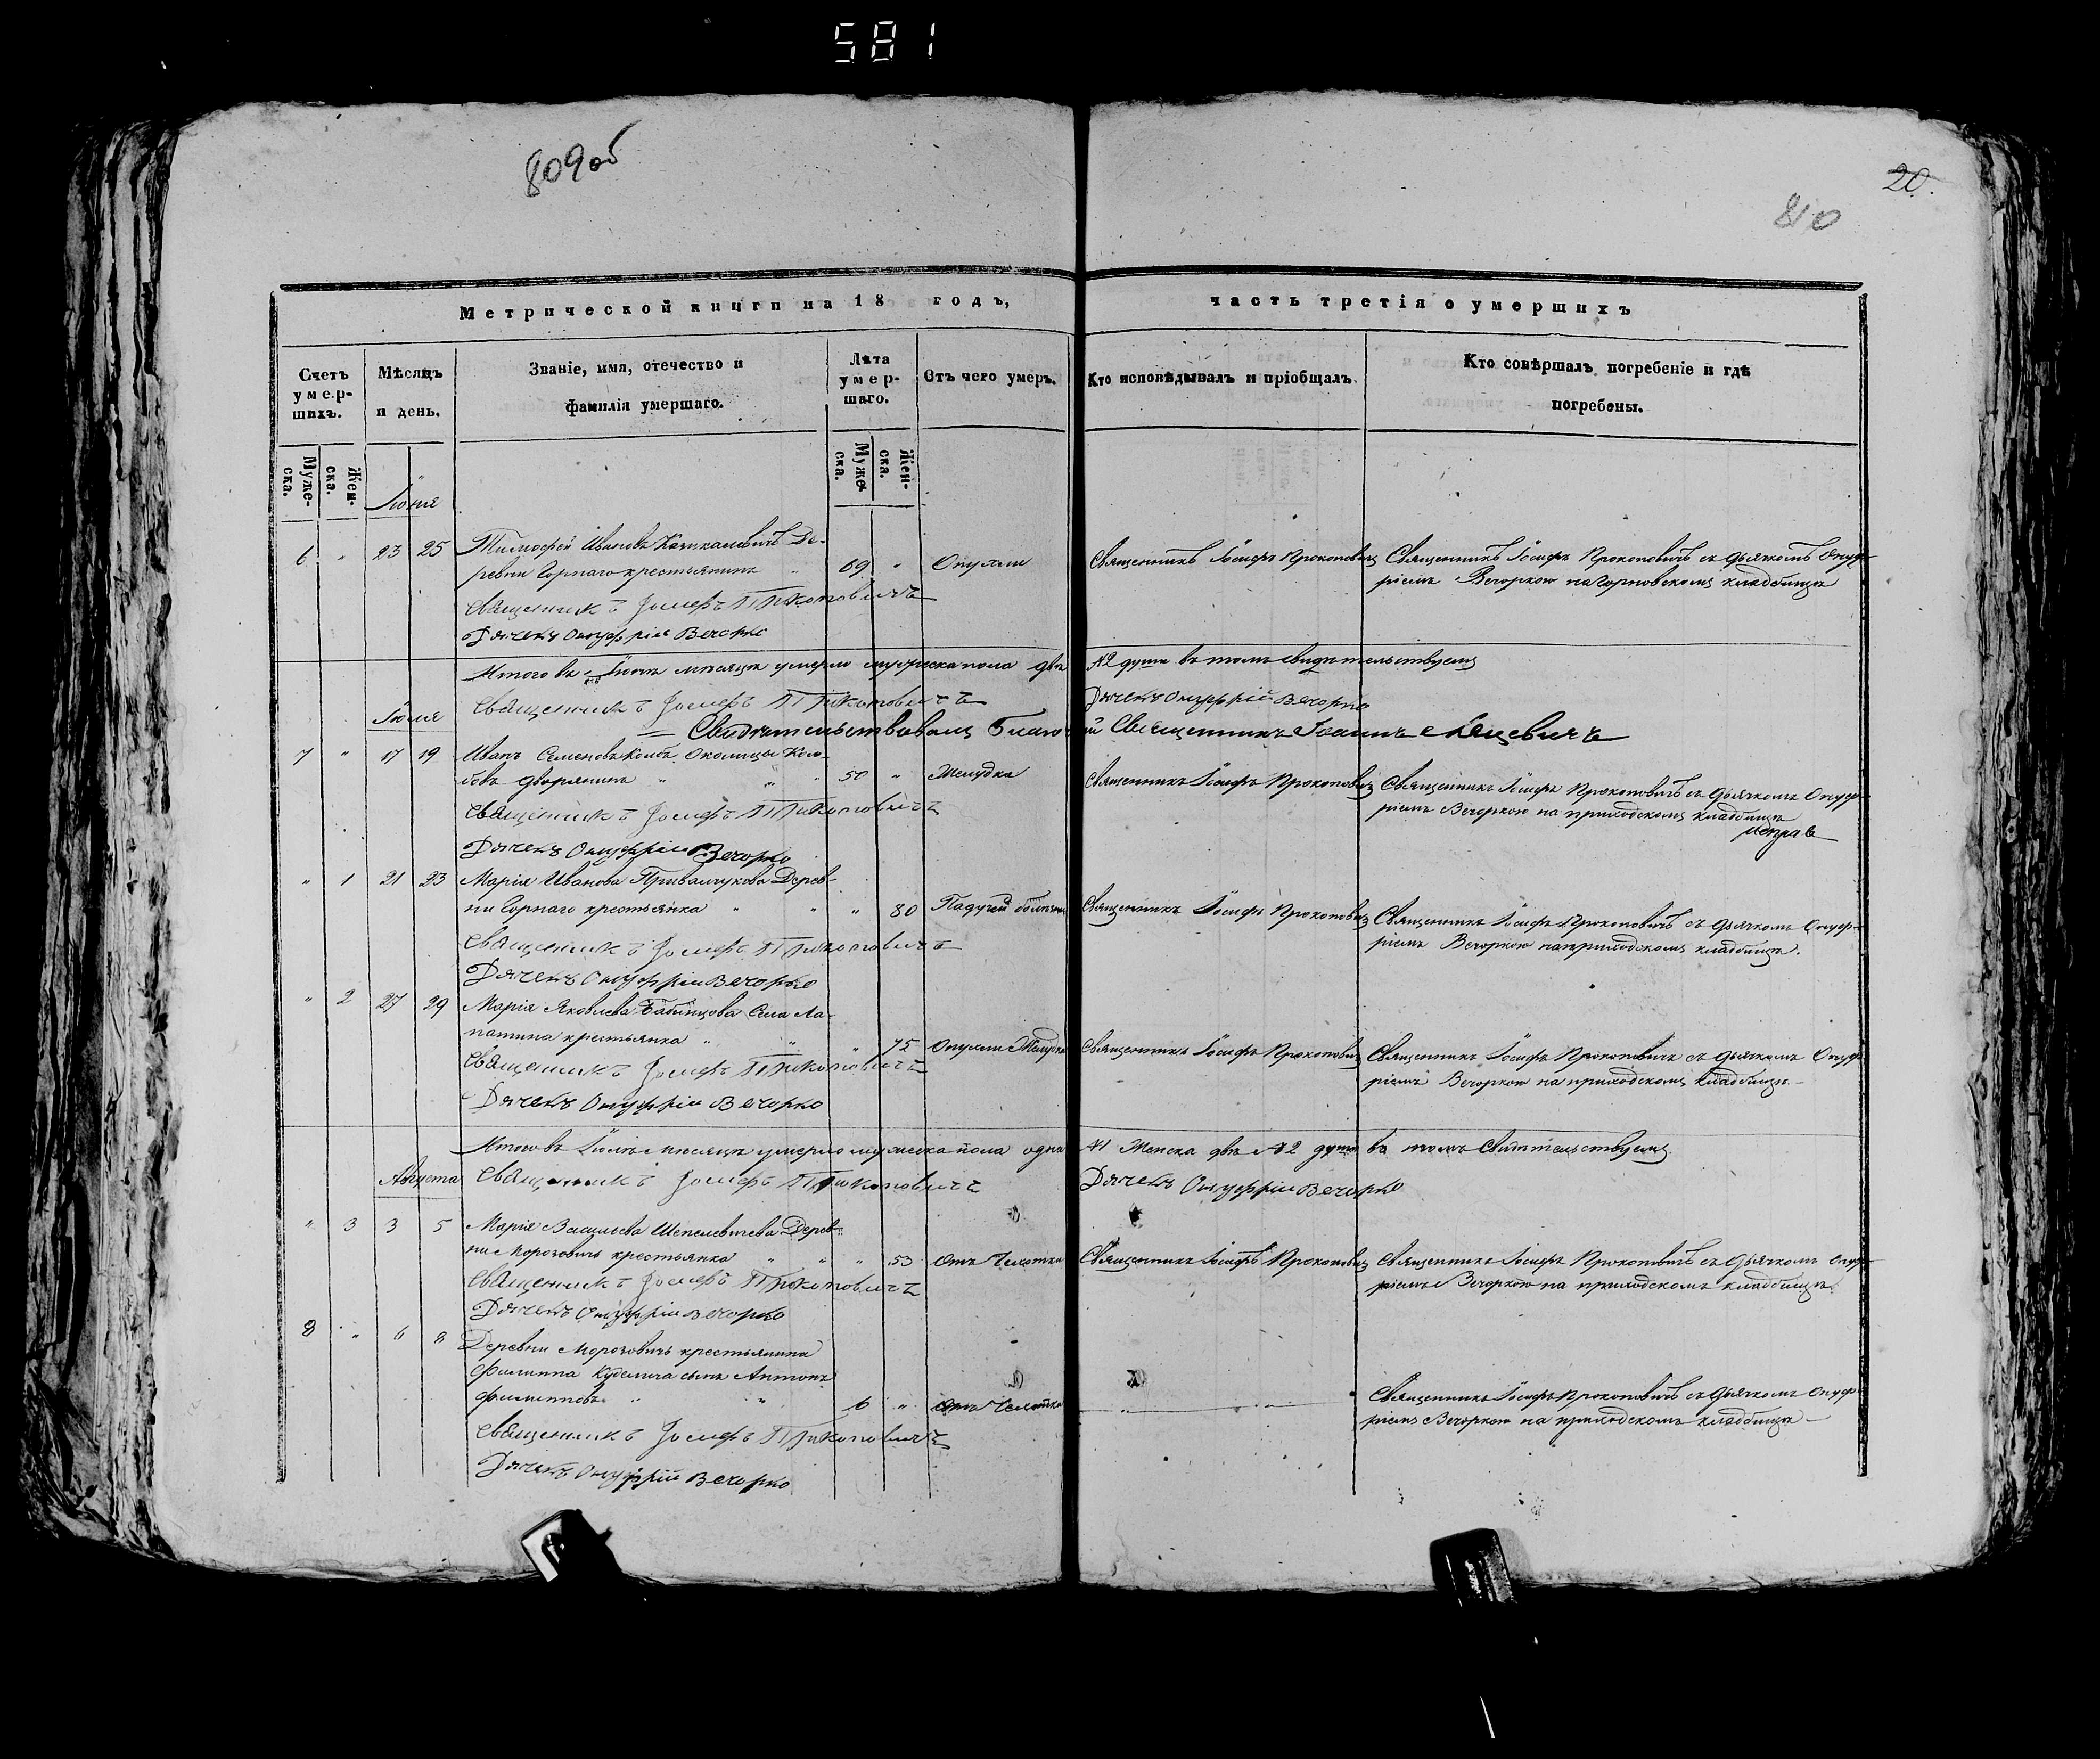 581
809об
20.
810
Метрической книги на 18 годъ, часть третія о умершихъ
Счетъ умершихъ.
Мѣсяцъ и день.
Званіе, имя, отечество и фамилія умершаго.
Лѣта умершаго.
Отъ чего умеръ.
Кто исповѣдывалъ и пріобщалъ.
Кто совѣршалъ погребеніе и гдѣ погребены.
Мужеска.
Женска.
Мужеска.
Женска.
Іюня
6 " 23 25 Тимофей Ивановъ Де-
ревни Горнаго крестьянинъ " 69 " Опухли
Священникъ Іосифъ Прокоповичъ
Священникъ Іосифъ Прокоповичъ съ дьячкомъ Онуф-
ріемъ Вечоркою на Горновскомъ кладбищѣ
Священникъ Іосифъ Прокоповичъ
Дячекъ Онуфрій Вечорко
Итого въ Іюнѣ мѣсяцѣ умерло мужеска пола двѣ №2 души въ томъ свидѣтельствуемъ
Священникъ Іосифъ Прокоповичъ
Дячекъ Онуфрій Вечорко
Іюля
Свидѣтельствовалъ Священникъ Іоаннъ
7 " 17 19 Иванъ Семеновъ Колбъ Околицы Кол-
бовъ дворянинъ " " 50 " Желудка
Священникъ Іосифъ Прокоповичъ
Священникъ Іосифъ Прокоповичъ съ дьячкомъ Онуф-
ріемъ Вечоркою на приходскомъ кладбищѣ
Священникъ Іосифъ Прокоповичъ
Дячекъ Онуфрій Вечорко
" 1 21 23 Марія Иванова Привалчукова Дерев-
ни Горнаго крестьянка " " " 80 Падучей болѣзни
Священникъ Іосифъ Прокоповичъ
Священникъ Іосифъ Прокоповичъ съ дьячкомъ Онуф-
ріемъ Вечоркою на приходскомъ кладбищѣ.
Священникъ Іосифъ Прокоповичъ
Дячекъ Онуфрій Вечорко
" 2 27 29 Марія Яковлева Бабинцова Села Ла-
патина крестьянка " " " 75 Опухли Желудка
Священникъ Іосифъ Прокоповичъ
Священникъ Іосифъ Прокоповичъ съ дьячкомъ Онуф-
ріемъ Вечоркою на приходскомъ кладбищѣ
Священникъ Іосифъ Прокоповичъ
Дячекъ Онуфрій Вечорко
Итого въ Іюлѣ мѣсяцѣ умерло мужеска пола одна №1 Женска двѣ №2 души въ томъ свидѣтельствуемъ
Августа
Священникъ Іосифъ Прокоповичъ
Дячекъ Онуфрій Вечорко
" 3 3 5 Марія Васильева Шепелевичева Дерев-
ни Морозовичъ крестьянка " " " 53 Отъ Чахотки
Священникъ Іосифъ Прокоповичъ
Священникъ Іосифъ Прокоповичъ съ дьячкомъ Онуф-
ріемъ Вечоркою на приходскомъ кладбищѣ
Священникъ Іосифъ Прокоповичъ
Дячекъ Онуфрій Вечорко
8 " 6 8 Деревни Морозовичъ крестьянина
Филиппа сынъ Антонъ
Филипповъ " " 6 " Отъ Чахотки
Священникъ Іосифъ Прокоповичъ съ дьячкомъ Онуф-
ріемъ Вечоркою на приходскомъ кладбищѣ
Священникъ Іосифъ Прокоповичъ
Дячекъ Онуфрій Вечорко